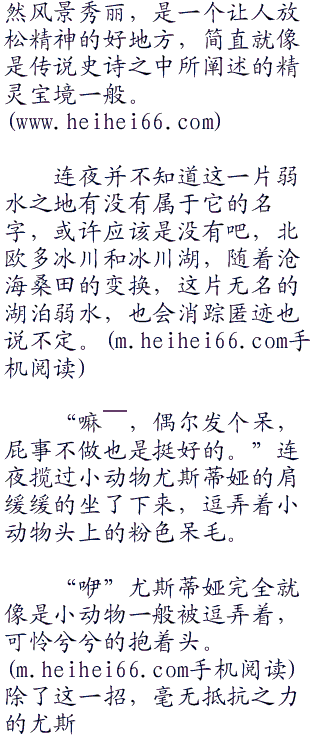 然风景秀丽，是一个让人放
松精神的好地方，简直就像
是传说史诗之中所阐述的精
灵宝境一般。
(www.heihei66.com)
连夜并不知道这一片弱
水之地有没有属于它的名
字，或许应该是没有吧，北
欧多冰川和冰川湖，随着沧
海桑田的变换，这片无名的
湖泊弱水，也会消踪匿迹也
说不定。(m.heihei66.com手
机阅读)
“嘛——，偶尔发个呆，
屁事不做也是挺好的。”连
夜揽过小动物尤斯蒂娅的肩
缓缓的坐了下来，逗弄着小
动物头上的粉色呆毛。
“咿”尤斯蒂娅完全就
像是小动物一般被逗弄着，
可怜兮兮的抱着头。
(m.heihei66.com手机阅读)
除了这一招，毫无抵抗之力
的尤斯